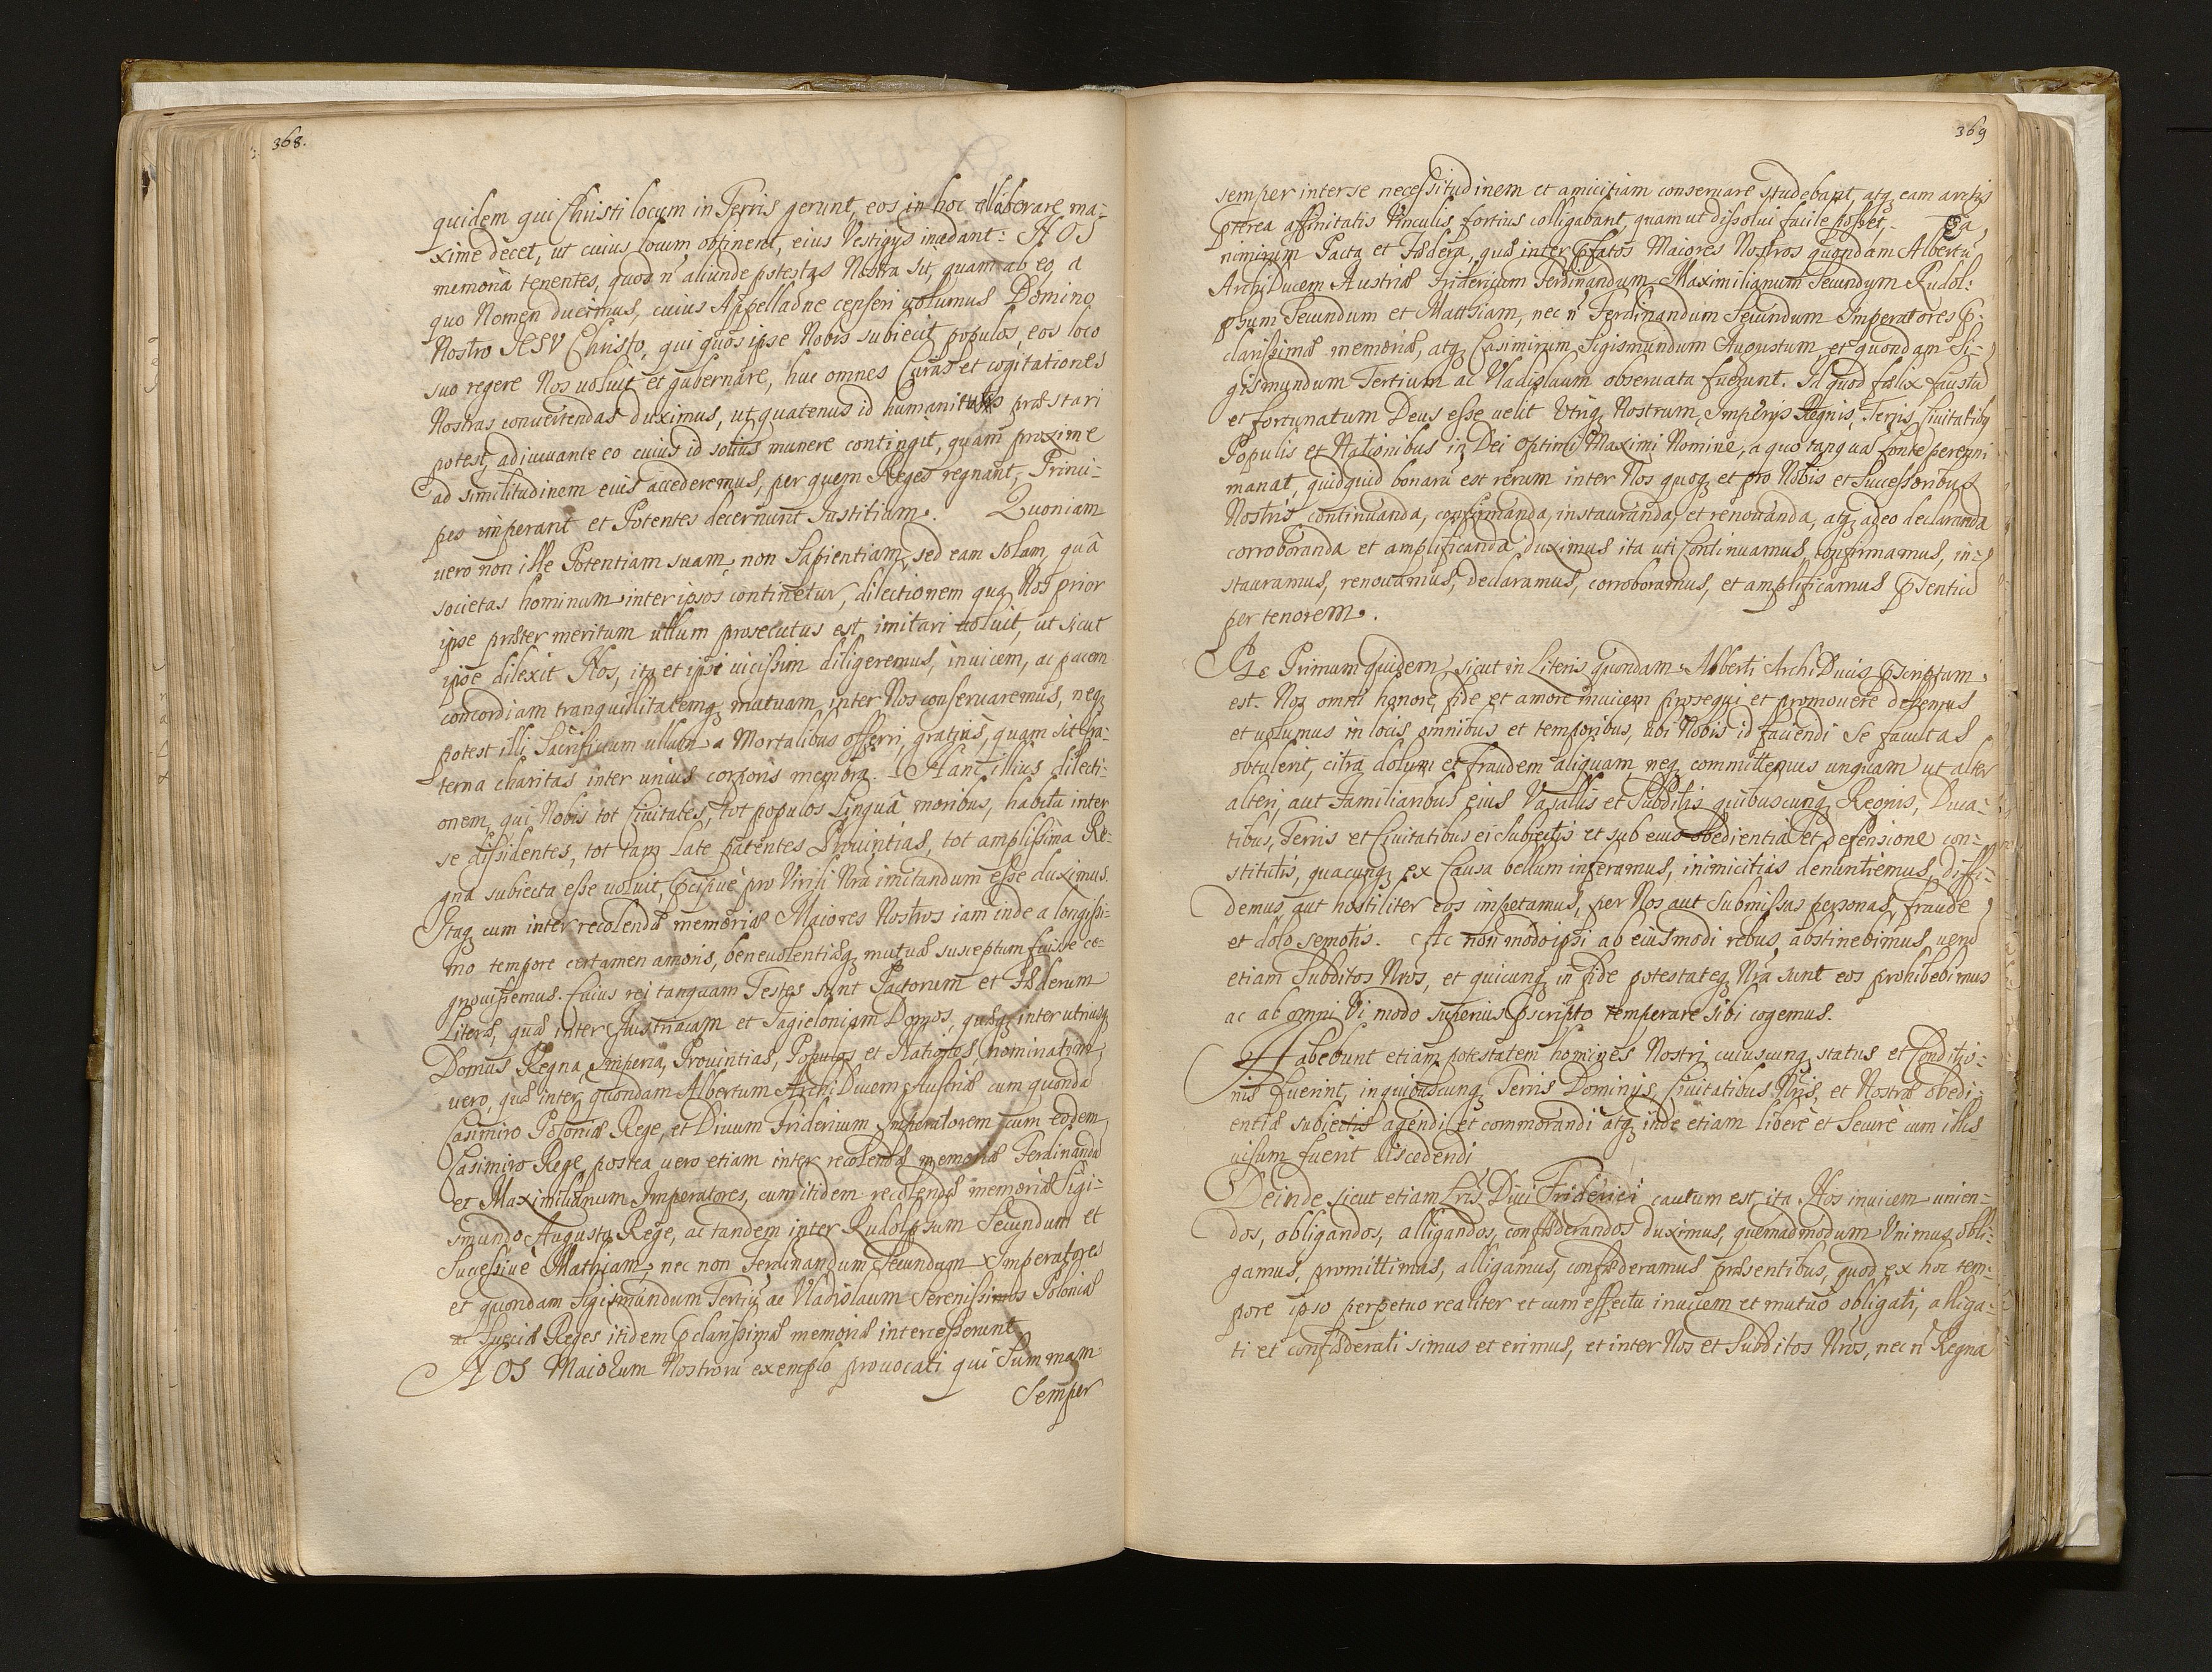 368.
quidem qui Christi locum in Terris gerunt, eos in hoc ellaborare ma-
xime decet, ut cuius locum obtinent, eius Vestigys inædant: NOS
memoriā tenentes, quod n̄ aliunde potestas Nostra sit, quam ab eo, a
quo Nomen ducimus, cuius Appellaōne censeri uolumus Domino
Nostro IESV Christo, qui quos ipse Nobis subiecit populos, eos loco
suo regere Nos uoluit et gubernare, huc omnes Curas et cogitationes
Nostras conuertendas duximus, ut quatenus id humanitus præstari
potest, adiuuante eo cuius id solius munere contingit, quam proxime
ad similitudinem eius accederemus, per quem Reges regnant, Princi-
pes imperant et Potentes decernunt Iustitiam. Quoniam
uero non ille Potentiam suam, non Sapientiam, sed eam solam, quâ
societas hominum inter ipsos continetur, dilectionem qua Nos prior
ipse præter meritum ullum prosecutus est imitari uoluit, ut sicut
ipse dilexit Nos, ita et ipsi uicissim diligeremus, inuicem, ac pacem
concordiam tranquillitatemq mutuam inter Nos conseruaremus, neq
potest illi Sacrificium ullum a Mortalibus offerri, gratius, quam sit fra-
terna charitas inter unius corporis membra. Hanc illius dilecti-
onem, qui Nobis tot Ciuitates, tot populos Linguâ moribus, habitu inter
se dissidentes, tot tam Late patentes Prouintias, tot amplissima Re-
gna subiecta esse uoluit, p̄cipuè pro Virili Nrā imitandum esse duximus.
Itaq cum inter recolendæ memoriæ Maiores Nostros iam inde a longissi-
mo tempore certamen amoris, beneuolentiæq mutuæ susceptum fuisse co-
gnouissemus. Cuius rei tanquam Testes sunt Pactorum et Fæderum
Literæ, quæ inter Austriacam et Iagieloniam Domos, quæq inter utriusq
Domus Regna, Imperia, Prouintias, Populos et Nationes, nominatim
uero, quæ inter quondam Albertum Archi Ducem Austriæ cum quondā
Casimiro Poloniæ Rege, et Diuum Fridericum Imperatorem cum eodem
Casimiro Rege, postea uero etiam inter recolendæ memoriæ Ferdinandū
et Maximilianum Imperatores, cum itidem recolendæ memoriæ Sigi-
smundo Augusto Rege, ac tandem inter Rudolphum Secundum et
Successiuè Mathiam, nec non Ferdinandum Secundum Imperatores
et quondam Sigismundum Tertiū ac Vladislaum Serenissimos Poloniæ
ac Sueciæ Reges itidem p̄clarissimæ memoriæ intercesserunt
NOS Maiorum Nostrorū exemplo prouocati qui Summam
Semper
369
semper inter se necessitudinem et amicitiam conseruare studebant, atq eam arctis
p̄terea affinitatis Vinculis, fortius colligabant quam ut dissolui facile posset, Ea,
nimirum Pacta et Fædera, quæ inter p̄fatos Maiores Nostros quondam Albertū
Archi Ducem Austriæ Fridericum Ferdinandum Maximilianum Secundum Rudol-
phum Secundum et Matthiam, nec n̄ Ferdinandum Secundum Imperatores p̄-
clarissimæ memoriæ, atq Casimirum Sigismundum Augustum et quondam Si-
gismundum Tertium ac Vladislaum obseruata fuerunt. Id quod fælix faustū
et fortunatum Deus esse uelit Utriq Nostrum, Imperijs Regnis, Terris, Ciuitatibq
Populis et Nationibus in Dei Optimi Maximi Nomine, a quo tanquā fonte perenni
manat, quidquid bonarū est rerum inter Nos quoq et pro Nobis et Successoribus
Nostris continuanda, confirmanda, instauranda, et renouanda, atq adeo declaranda
corroboranda et amplificanda duximus ita uti Continuamus, confirmamus, in-
stauramus, renouamus, declaramus, corroboramus, et amplificamus p̄sentiū
per tenorem.
Ac Primum quidem, sicut in Literis quondam Alberti Archi Ducis p̄scriptam
est. Nos omni honore, fide et amore inuicem prosequi et promouere debemus
et uolumus in locis omnibus et temporibus, ubi Nobis id faciendi se facultas
obtulerit, citra dolum et fraudem aliquam, neq committemus unquam ut alter
alteri, aut Familiaribus eius Vasallis et Subditis quibuscunq Regnis, Duca-
tibus, Terris et Ciuitatibus ei Subiectis et sub eius obedientia et defensione con-
stitutis, quacunq ex Causa bellum inferamus, inimicitias denuntiemus, diffi-
demus aut hostiliter eos impetamus, per Nos aut Submissas personas, fraude
et dolo semotis. Ac non modo ipsi ab eiusmodi rebus abstinebimus uerū
etiam Subditos Nros, et quicunq in fide potestateq Nrā sunt eos prohibebimus
ac ab omni Vi modo superius p̄scripto temperare sibi cogemus.
Habebunt etiam potestatem homines Nostri cuiuscunq status et Conditio-
nis fuerint, in quibuscunq Terris Dominijs, Ciuitatibus Nris, et Nostræ obedi-
entiæ subiectis agendi et commorandi atq inde etiam liberè et Securè cum illis
uisum fuerit discedendi
Deinde sicut etiam Lris Diui Friderici cautum est, ita Nos inuicem unien-
dos, obligandos, alligandos, confæderandos duximus, quemadmodum Vnimus obli-
gamus, promittimus, alligamus, confæderamus præsentibus, quod ex hoc tem-
pore ipso perpetuo realiter et cum effectu inuicem et mutuò obligati, alliga-
ti et confæderati simus et erimus, et inter Nos et Subditos Nros, nec n̄ Regna